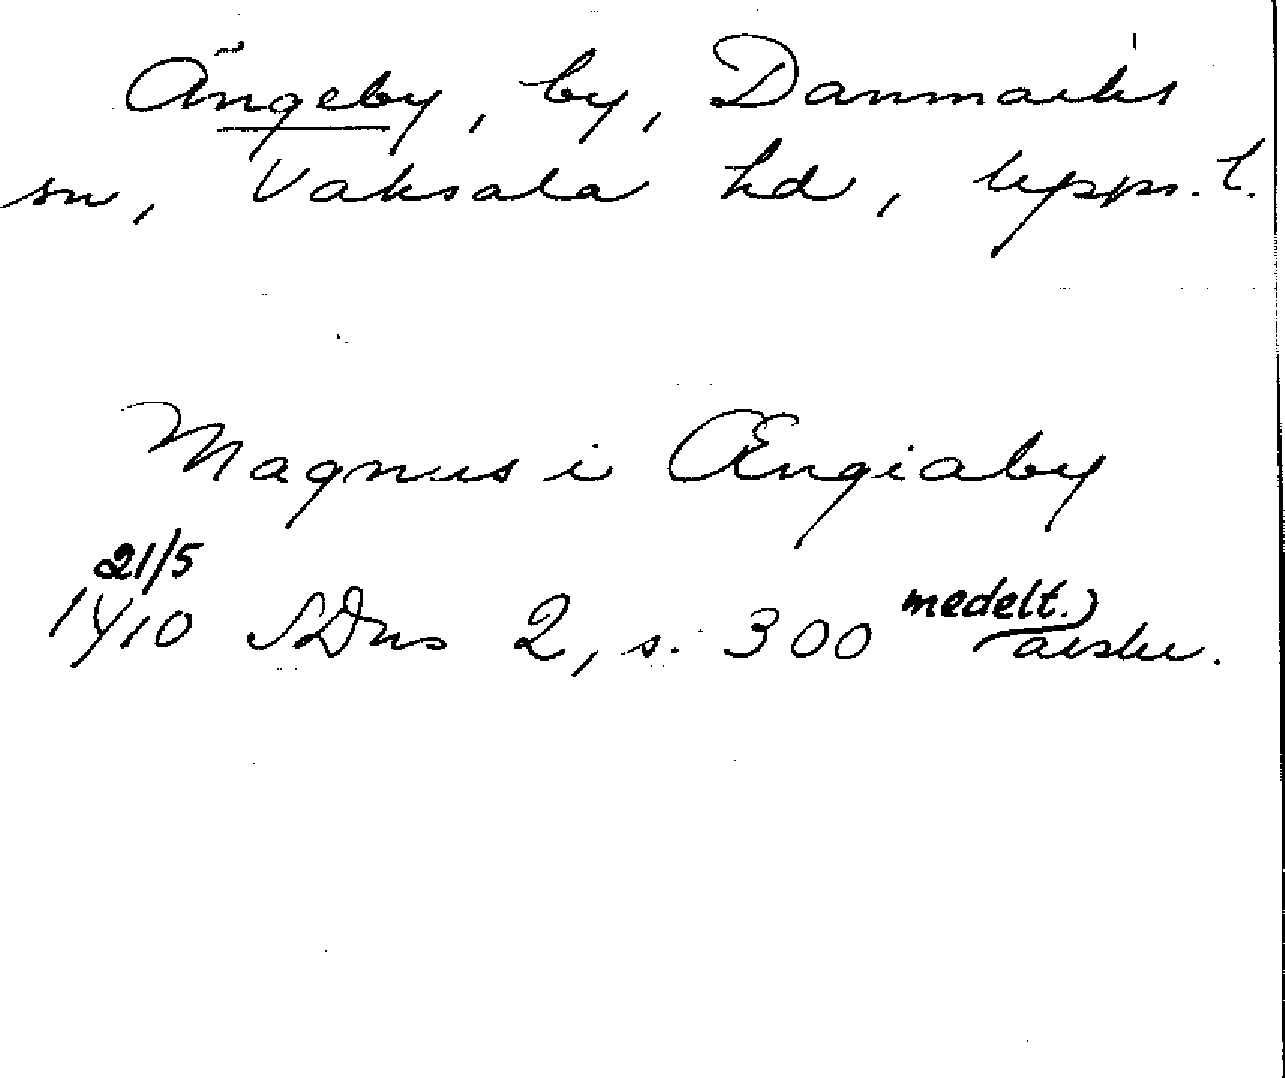 Ängeby, by, Danmarks
sn, Vaksala hd, Upps. l.
Magnus i Ængiaby
21/5
1410 SDns 2, s. 300 medelt.)
avskr.